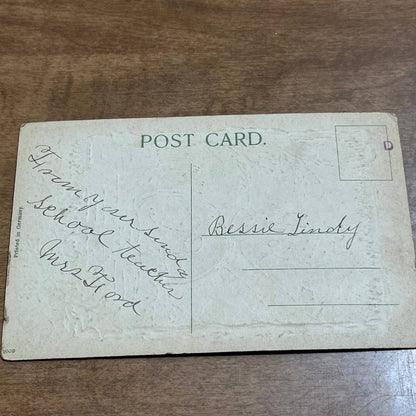 POST CARD.
From your sunda
school teacher
Mrs Ford
Bessie Lindy
Printed in Germany
D